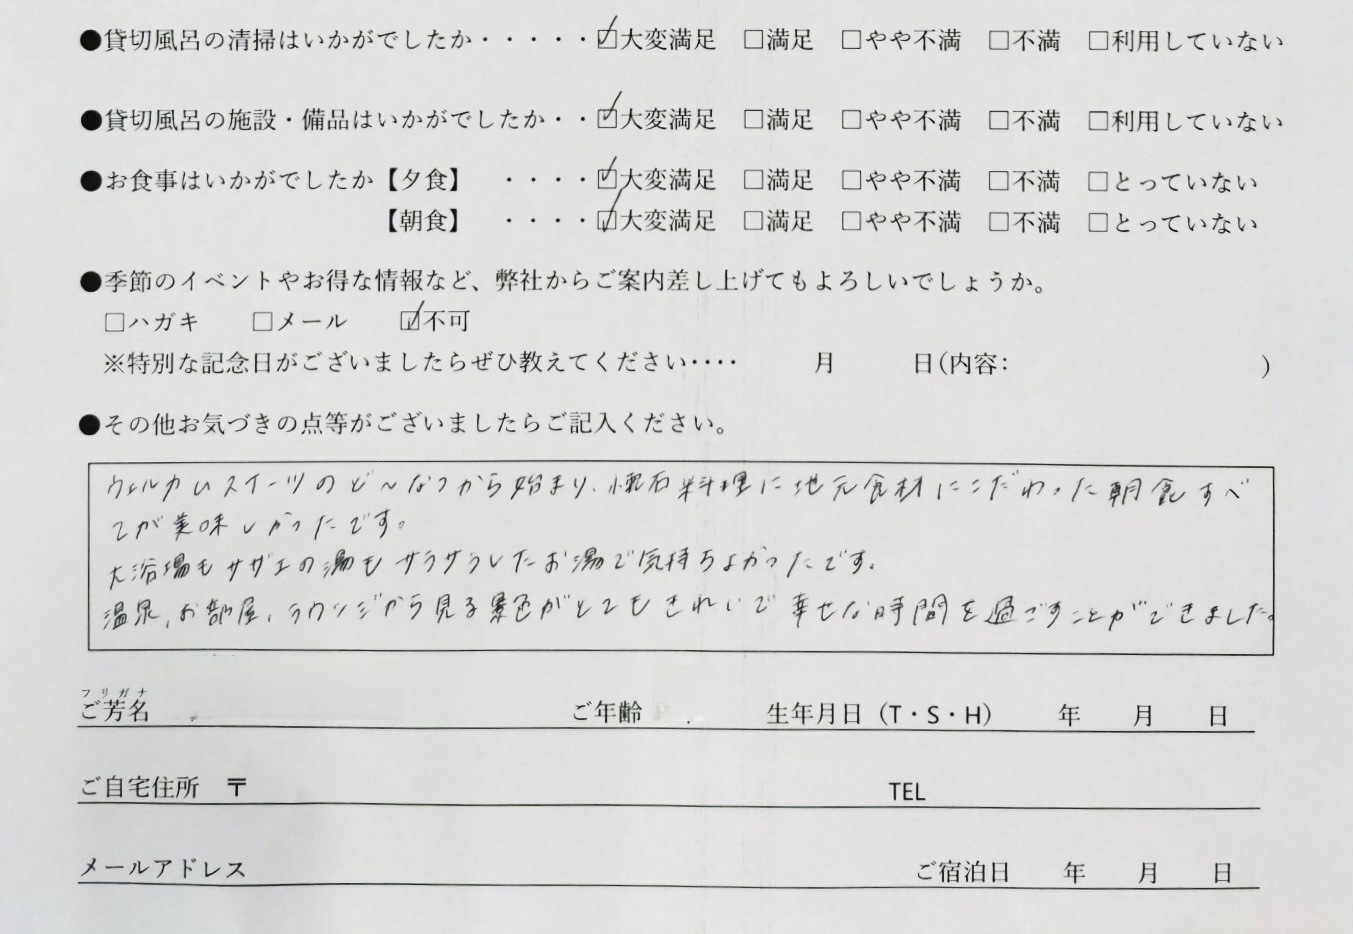 ●貸切風呂の清掃はいかがでしたか・・・・・☑大変満足 □満足 □やや不満 □不満 □利用していない
●貸切風呂の施設・備品はいかがでしたか・・☑大変満足 □満足 □やや不満 □不満 □利用していない
●お食事はいかがでしたか【夕食】 ・・・・☑大変満足 □満足 □やや不満 □不満 □とっていない
【朝食】 ・・・・☑大変満足 □満足 □やや不満 □不満 □とっていない
●季節のイベントやお得な情報など、弊社からご案内差し上げてもよろしいでしょうか。
□ハガキ □メール ☑不可
※特別な記念日がございましたらぜひ教えてください‥‥ 月 日(内容: )
●その他お気づきの点等がございましたらご記入ください。
ウェルカムスイーツのど〜なつから始まり、懐石料理に地元食材にこだわった朝食すべ
てが美味しかったです。
大浴場もサザエの湯もサラサラしたお湯で気持ちよかったです。
温泉、お部屋、ラウンジから見る景色がとてもきれいで幸せな時間を過ごすことができました。
フリガナ
ご芳名 ご年齢 生年月日（T・S・H） 年 月 日
ご自宅住所 〒 TEL
メールアドレス ご宿泊日 年 月 日